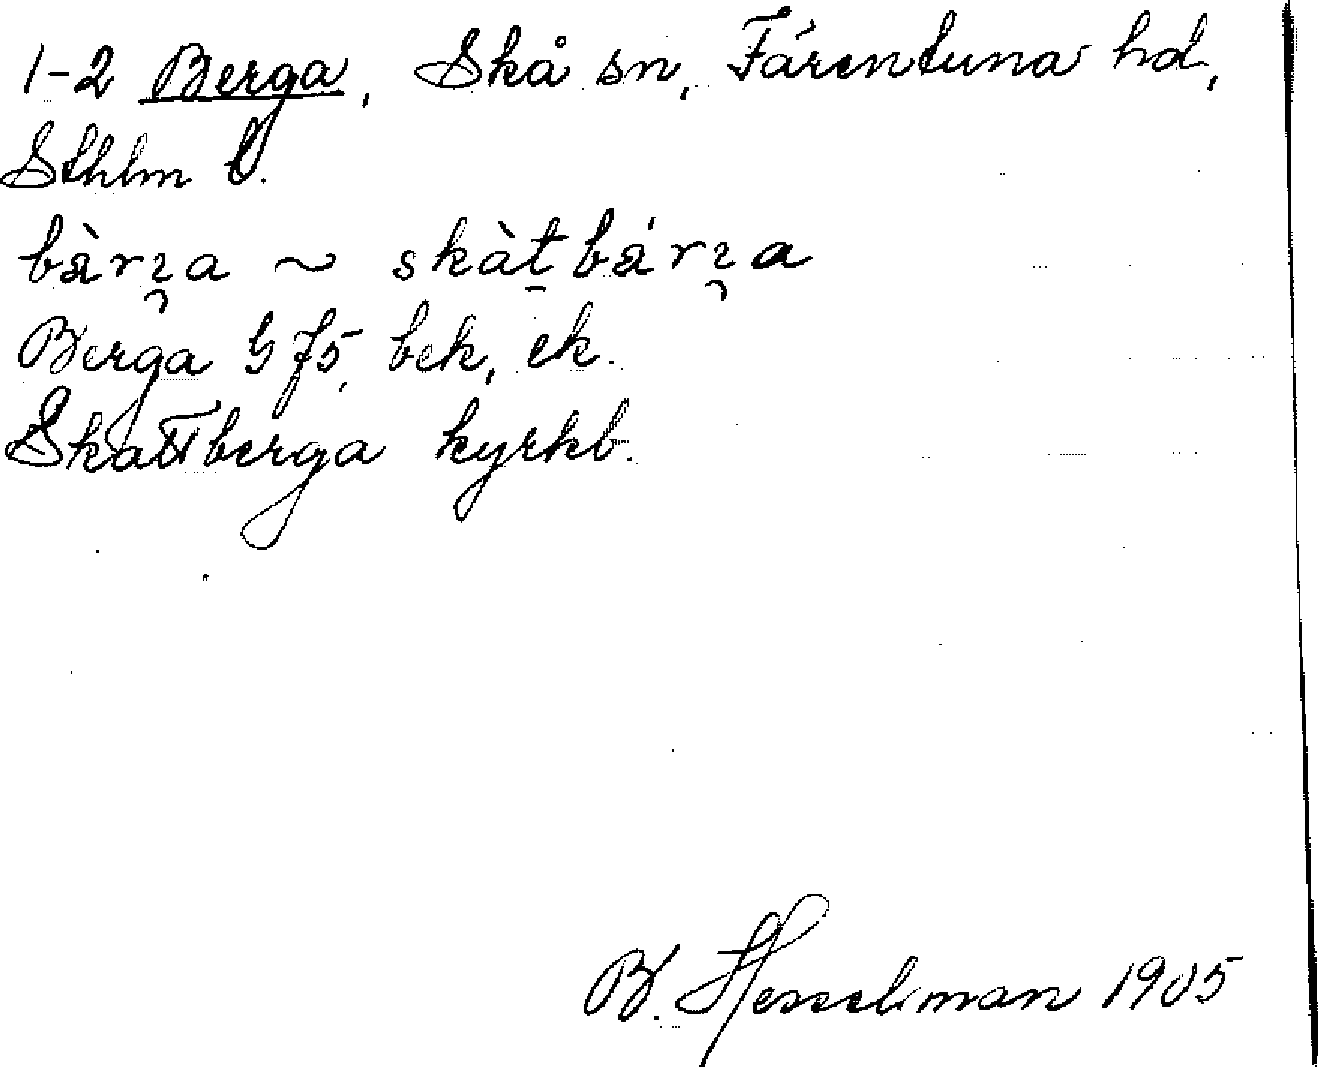 1-2 Berga, Skå sn, Färentuna hd,
Sthlm l.
bàrɪ̯a ~ skàt̠bárɪ̯a
Berga G f5, bek, ek.
Skattberga kyrkb.
B. Hesselman 1905